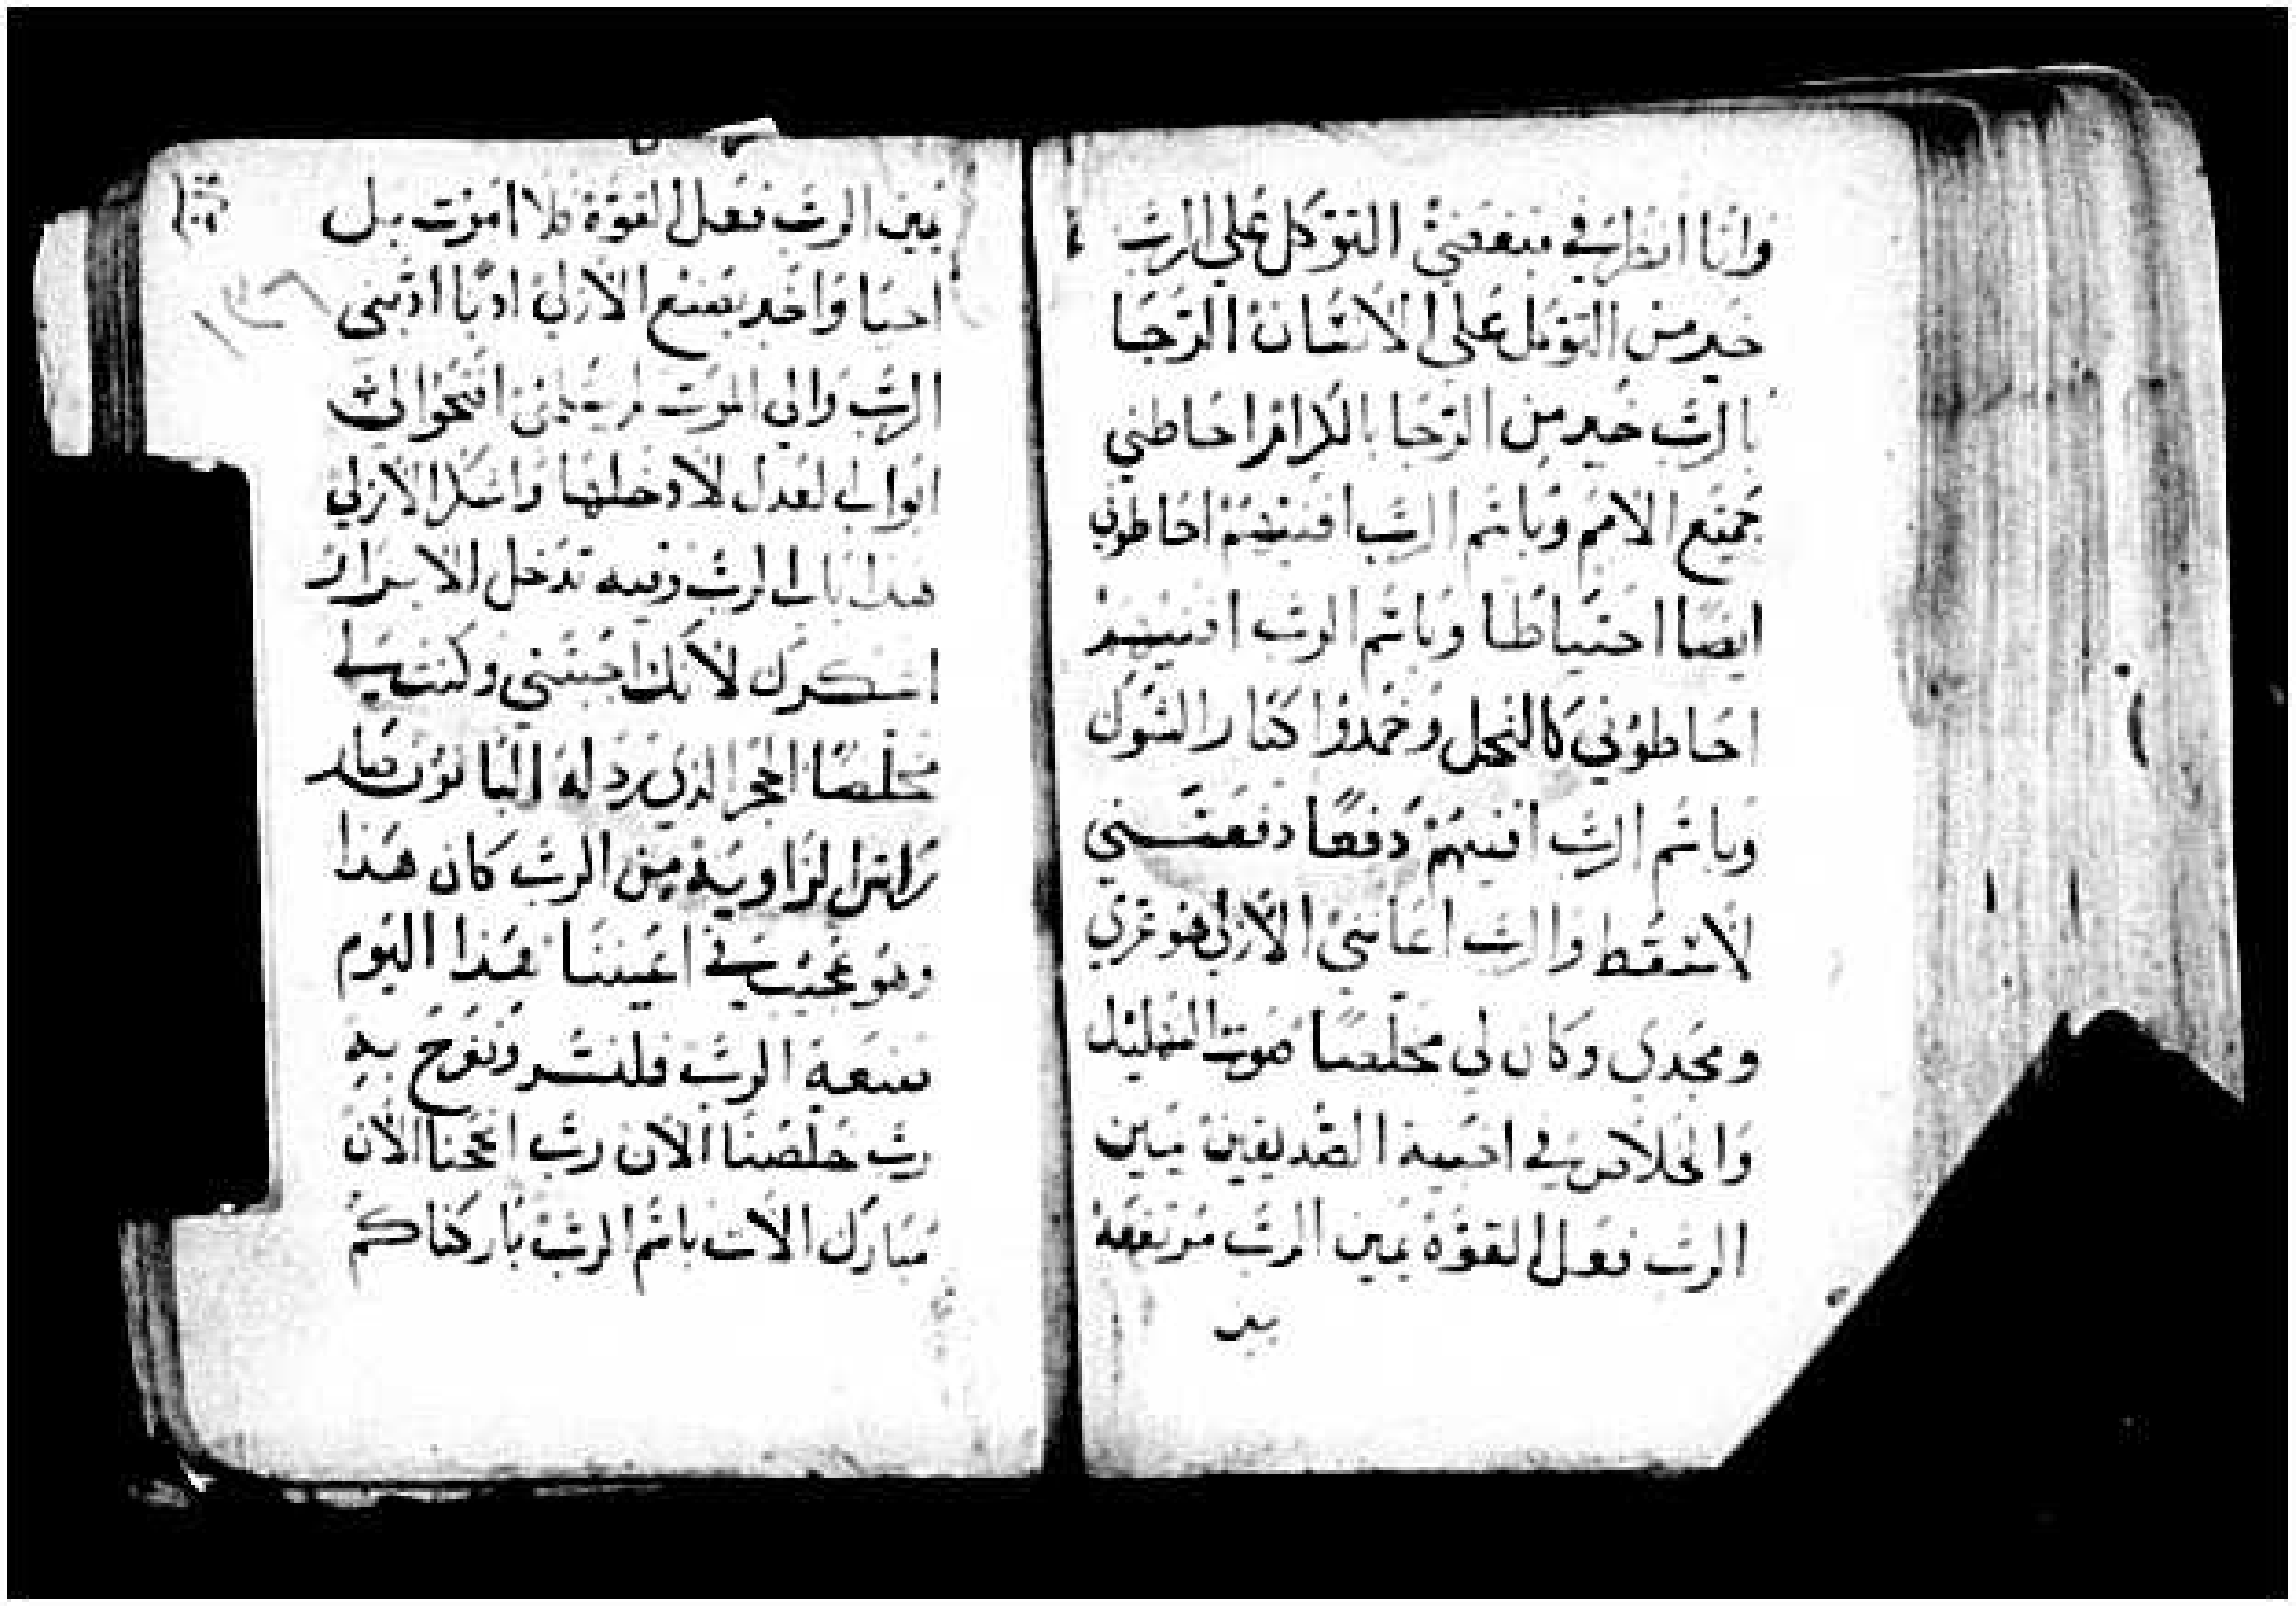 وانا انظر في مبغضيّ التوكل علي الرب
خير من التوكل علي الانسان الرجا
بالرب خير من الرجا بالارام احاطني
جميع الامم وباسم الرب افنيتهم احاطوني
ايضا احتياطا وباسم الرب افنيتهم
احاطوني كالنحل وخمدوا كنار الشوك
وباسم الرب افنيهم دفعا دفعتني
لاسقط والرب اعانني الازلي هو عزي
ومجدي وكان لي مخلصا صوت التهليل
والخلاص في اخبية الصديقين يمين
الرب فعل القوة يمين الرب مرتفعة
يمين
يمين الرب فعل القوة فلا اموت بل
احيا واخبر بصنع الازلي ادبا ادبني
الرب والي الموت لم يسلمني افتحوا لي
ابواب العدل لادخلها واشكر الازلي
هذا باب الرب وفيه تدخل الابرار
اشكرك لانك اجبتني وكنت لي
مخلصا الحجر الذي رذله البانون صار
راس الزاوية من الرب كان هذا
وهو عجيب في اعيننا هذا اليوم
صنعه الرب فلنسر ونفرح به
رب خلصنا الان رب انجحنا الان
مبارك الات باسم الرب باركناكم